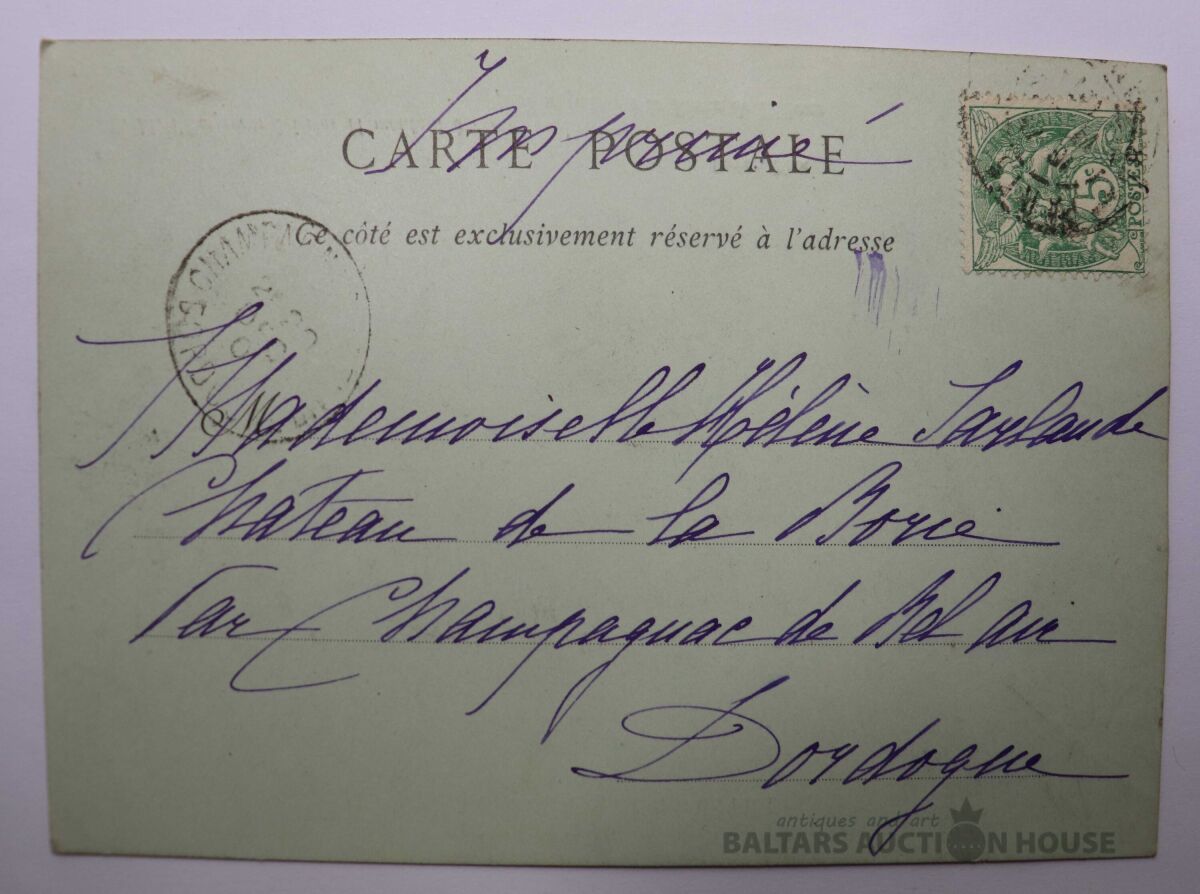 Imprimé
CARTE POSTALE
Ce côté est exclusivement réservé à l'adresse
5c
POSTES
CHAMPAGN
Mademoiselle Hélène Sarlande
Château de la Borie
Par Champagnac de Bel air
Dordogne
antiques and art
BALTARS AUCTION HOUSE